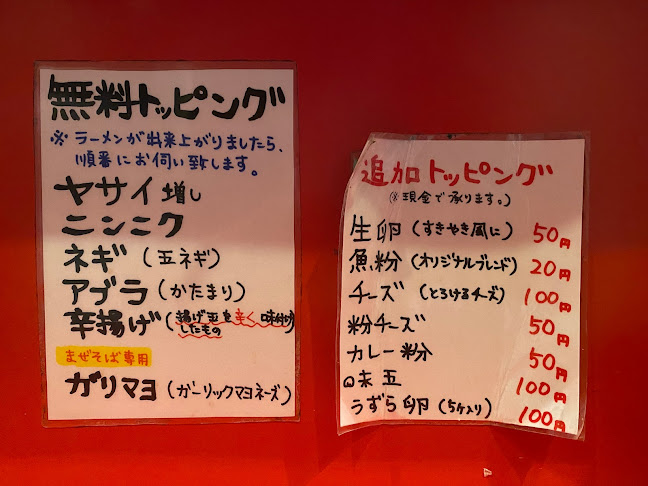 無料トッピング
※ラーメンが出来上がりましたら、
順番にお伺い致します。
ヤサイ増し
ニンニク
ネギ(玉ネギ)
アブラ(かたまり)
辛揚げ(揚げ玉を辛く味付け
したもの)
まぜそば専用
ガリマヨ(ガーリックマヨネーズ)
追加トッピング
(※現金で承ります。)
生卵(すきやき風に) 50円
魚粉(オリジナルブレンド) 20円
チーズ(とろけるチーズ) 100円
粉チーズ 50円
カレー粉 50円
味玉 100円
うずら卵(5ケ入り) 100円